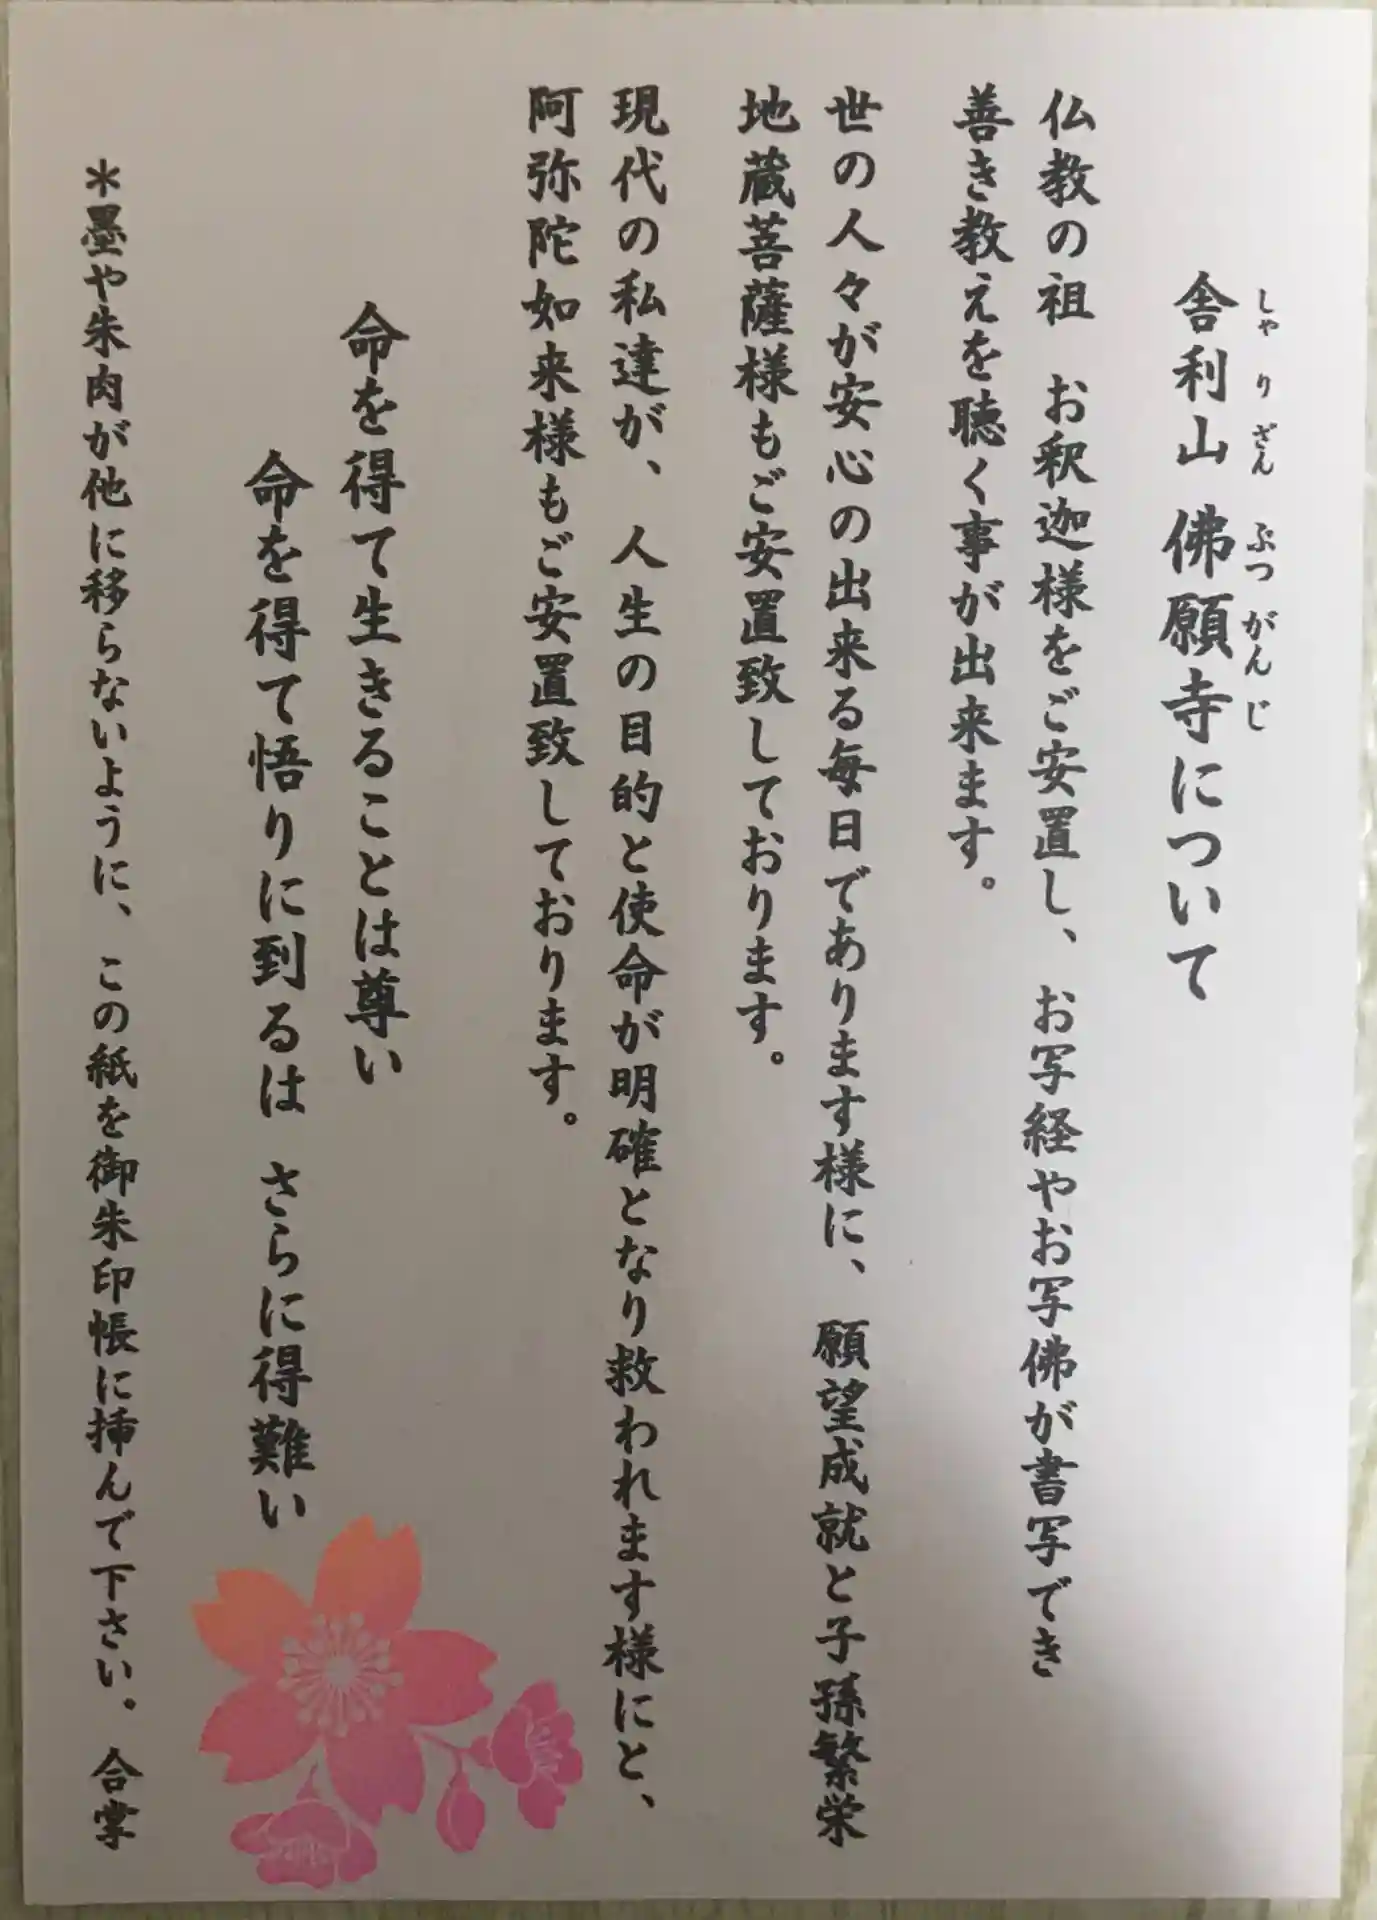 しゃりざん ぶつがんじ
舎利山 佛願寺について
仏教の祖 お釈迦様をご安置し、お写経やお写佛が書写でき
善き教えを聴く事が出来ます。
世の人々が安心の出来る毎日であります様に、願望成就と子孫繁栄
地蔵菩薩様もご安置致しております。
現代の私達が、人生の目的と使命が明確となり救われます様にと、
阿弥陀如来様もご安置致しております。
命を得て生きることは尊い
命を得て悟りに到るは さらに得難い
＊墨や朱肉が他に移らないように、この紙を御朱印帳に挿んで下さい。 合掌